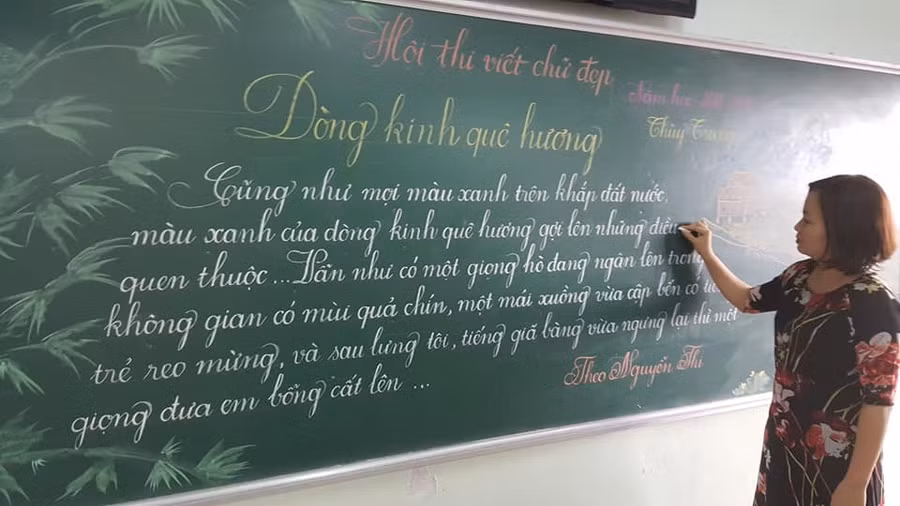 Hội thi viết chữ đẹp
Năm học
Thùy Trang
Dòng kinh quê hương
Cũng như mọi màu xanh trên khắp đất nước,
màu xanh của dòng kinh quê hương gợi lên những điều
quen thuộc... Vẫn như có một giọng hò đang ngân lên trong
không gian có mùi quả chín, một mái xuồng vừa cập bến có
trẻ reo mừng, và sau lưng tôi, tiếng giã bàng vừa ngưng lại thì một
giọng đưa em bỗng cất lên ...
Theo Nguyễn Thi